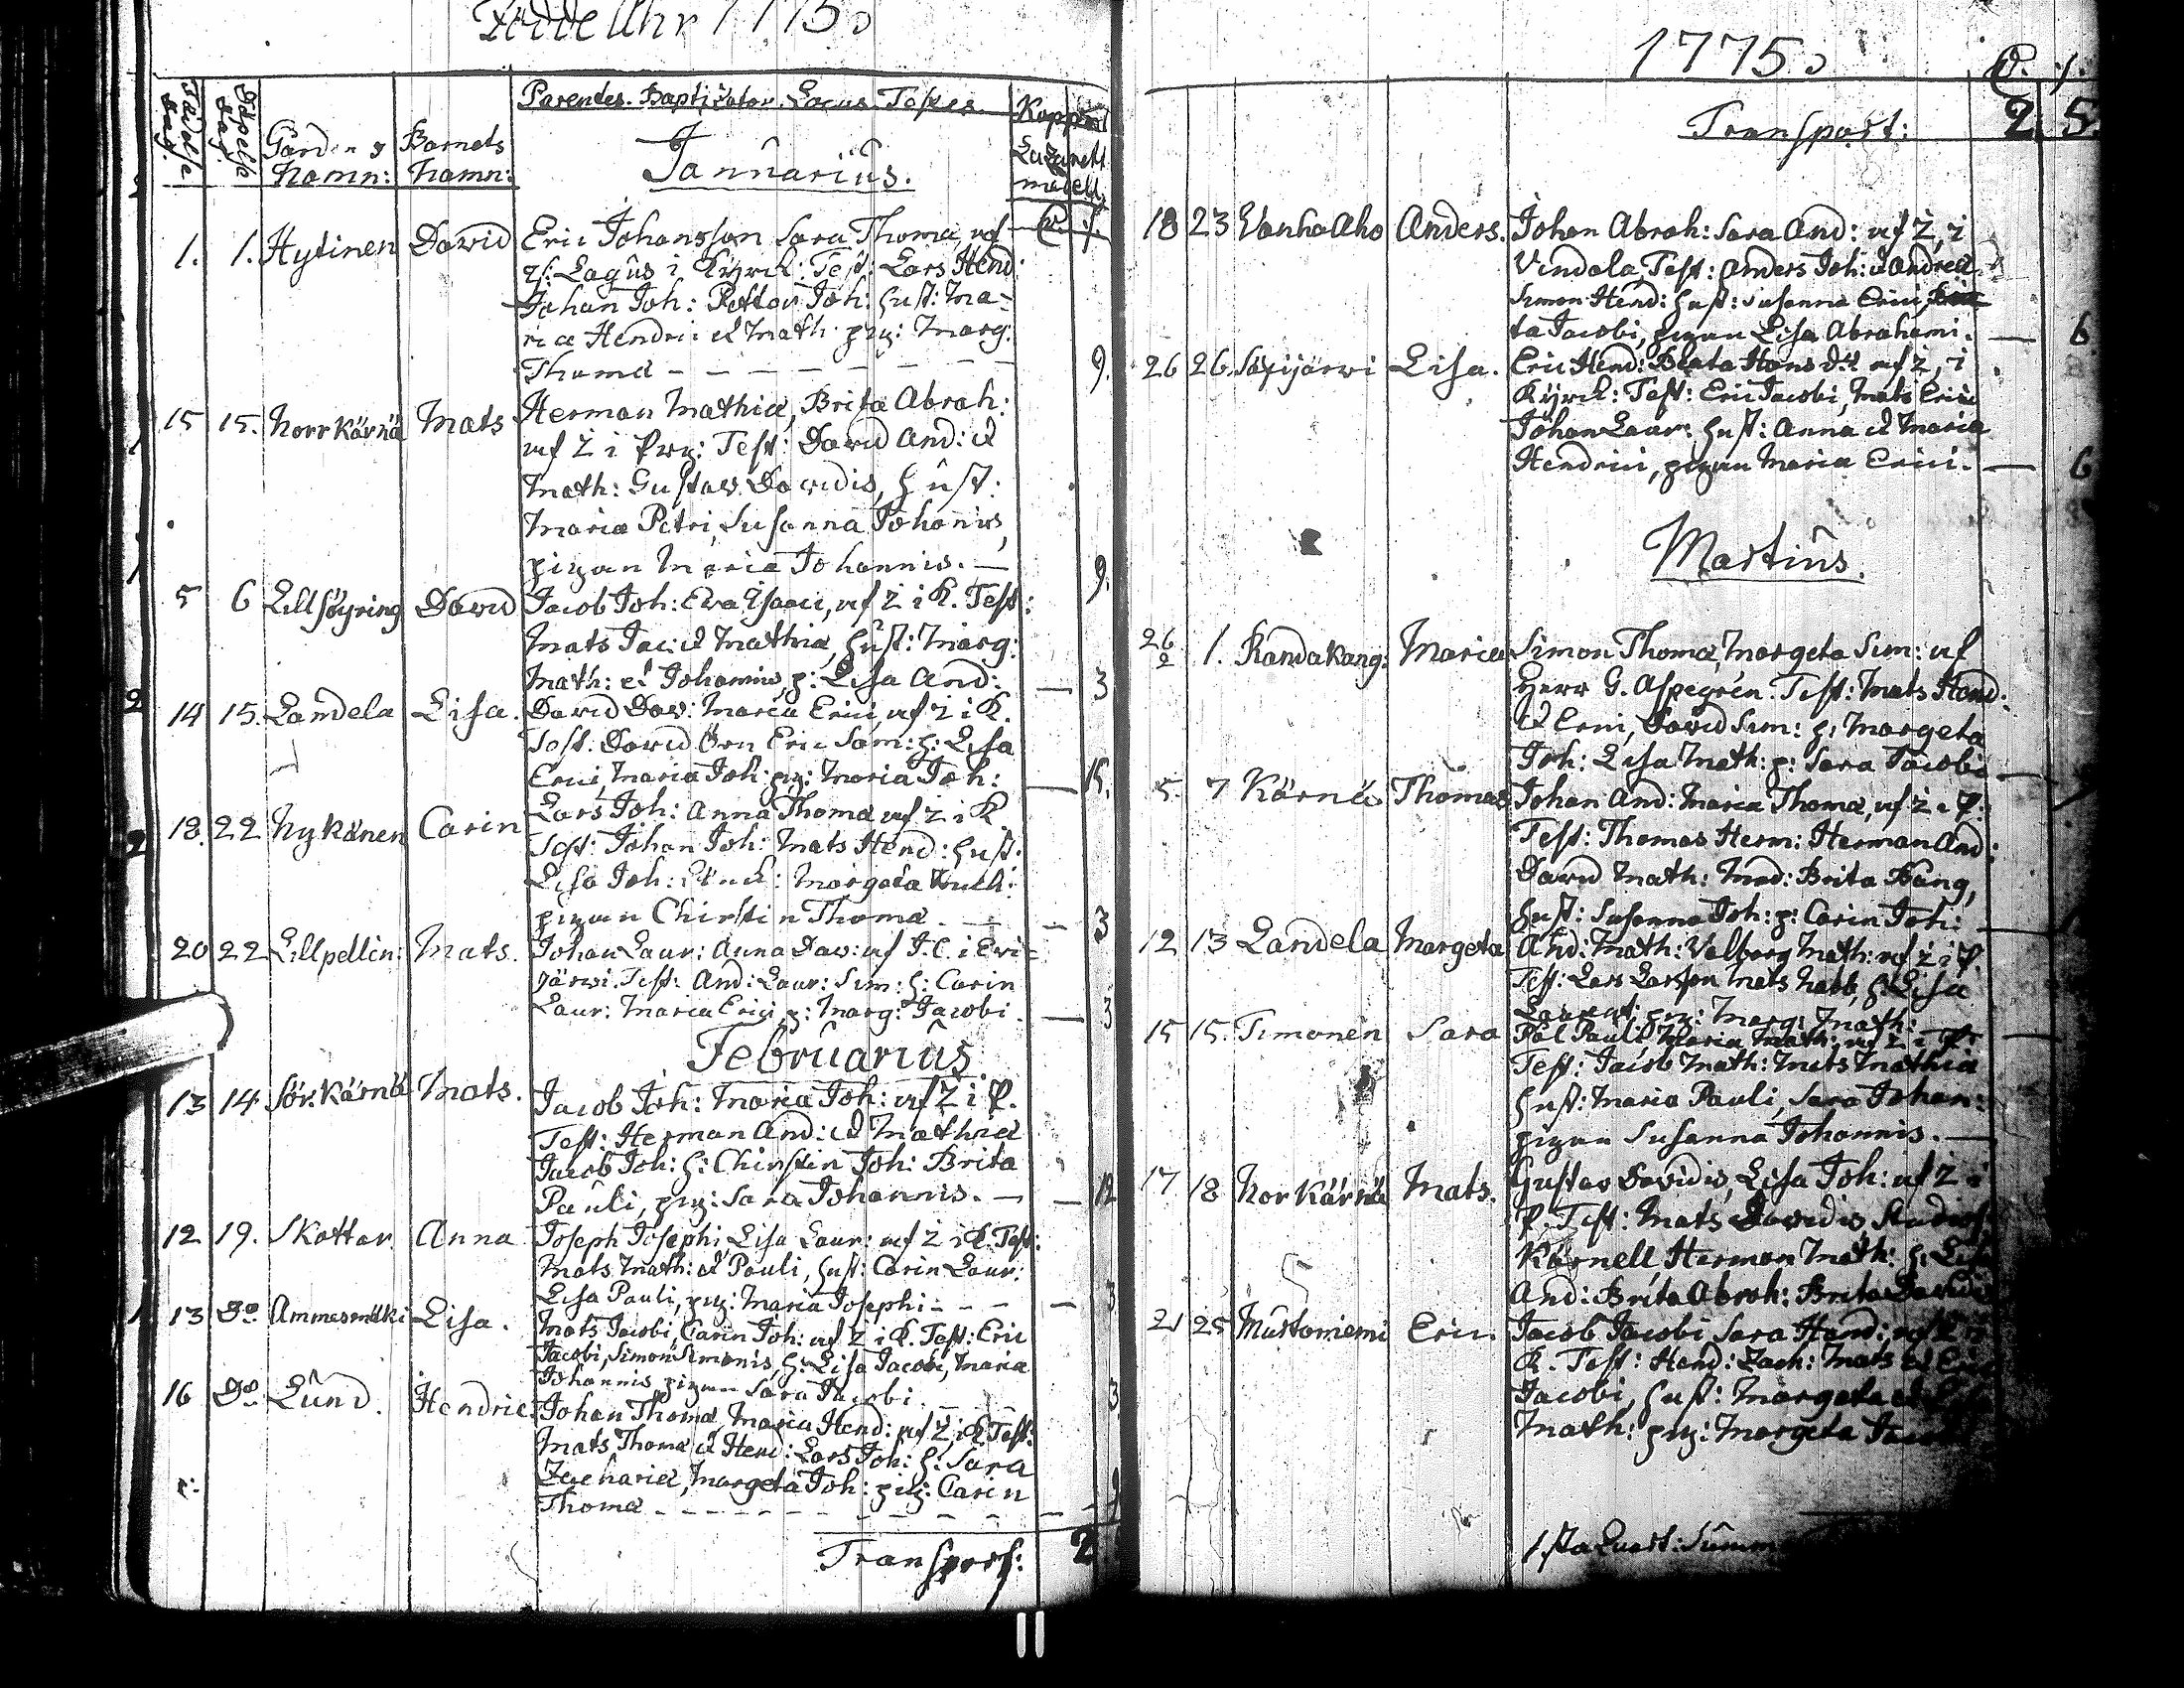 Födde Åhr 1775.
Födelse dag.
Döpelse dag.
Gårdens Namn:
Barnets Namn:
Parentes. Baptizator. Locus. Testes.
Januarius.
1. 1. Hytinen David Eric Johansson Sara Thomæ, af
Lagus i Kyrck: Test: Lars Hend:
Johan Joh: Petter Joh: hust: Ma-
ria Hendrici et Math: pig: Marg:
Thomæ - - - - - - - 9.
15 15. Norrkärnä Mats Herman Mathiæ, Brita Abrah:
af Z i Prg: Test: David And: et
Math: Gustav Davidis, hust:
Maria Petri, Susanna Johannis,
pigan Maria Johannis. — 9.
5 6 Lillsöyring David Jacob Joh: Eva Isaaci, af Z i K. Test:
Mats Jac: et Mathiæ, hust: Marg:
Math: et Johannis, p: Lisa And: — 3
14 15. Landela Lisa. David Dav: Maria Erici, af Z i K.
Test: David Örn Eric Sam: h: Lisa
Erici, Maria Joh: pig: Maria Joh: — 15.
18. 22 Nykänen Carin Lars Joh: Anna Thomæ af Z i K
Test: Johan Joh: Mats Hend: hust:
Lisa Joh: Margeta
pigan Chirstin Thomæ. — 3
20 22 Lillpellin: Mats. Johan Laur: Anna Dav: af J. C. i Evi=
järvi. Test: And: Laur: Sim: h: Carin
Laur: Maria Erici, p: Marg: Jacobi. — 3
Februarius
13 14 Sör. Kärnä Mats. Jacob Joh: Maria Joh: af Z i P.
Test: Herman And: et Mathiæ
Jacob Joh: h: Chirstin Joh: Brita
Pauli, pig: Sara Johannis. — 12
12 19. Skottar Anna Joseph Josephi, Lisa Laur: af Z i K. Test:
Mats Math: et Pauli, hust: Carin Laur:
Lisa Pauli, pig: Maria Josephi - - - 3
13 Do Ammesmäki Lisa. Mats Jacobi, Carin Joh: af Z i K. Test: Eric
Jacobi, Simon Simonis, h: Lisa Jacobi, Maria
Johannis pigan Sara Jacobi. 3
16 Do Lund. Hendric Johan Thomæ, Maria Hend: af Z i K Test:
Mats Thomæ et Hend: Lars Joh: h: Sara
Zachariæ, Margeta Joh: pig: Carin
Thomæ - - - - - - - 9
Transport: 2
1775.
Transport: 2. 5.
18 23 Vanha Aho Anders. Johan Abrah: Sara And: af Z, i
Vindala, Test: Anders Joh: et Andreæ
Simon Hend: hust: Susanna Erici,
ta Jacobi, pigan Lisa Abrahami. — 6.
26 26. Särijärvi Lisa. Eric Hend: Beata Hans dr af Z, i
Kyrck: Test: Eric Jacobi, Mats Erici
Johan Laur: hust: Anna et Maria
Hendrici, pigan Maria Erici. — 6
Martius.
26/2 1. Randakang: Maria Simon Thomæ, Margeta Sim: af
Herr G. Aspegrén. Test: Mats Hend:
et Erici, David Sim: h: Margeta
Joh: Lisa Math: p: Sara Jacobi —
5. 7 Kärnä Thomas Johan And: Maria Thomæ, af Z i P.
Test: Thomas Herm: Herman And:
David Math: Mad: Brita Bäng,
hust: Susanna Joh: p: Carin Joh: —
12 13 Landela Margeta And: Math: Valborg Math: af Z i P.
Test: Lars Larsson Mats h: Lisa
pig: Marg: Math:
15 15. Timonén Sara Pål Pauli, Maria Math: af Z i P. —
Test: Jacob Math: Mats Mathiæ
hust: Maria Pauli, Sara Johan:
pigan Susanna Johannis. —
17 18 Norkärnä Mats. Gustav Davidis, Lisa Joh: af Z i
P. Test: Mats Davidis
Kärnell Herman Math: h: Lisa
And: Brita Abrah: Brita Davidis
21 25 Mustaniemi Eric. Jacob Jacobi, Sara Hend: af Z i
K. Test: Hend: Zach: Mats et Eric
Jacobi, hust: Margeta et
Math: pig: Margeta
1.sta Quart: Summ